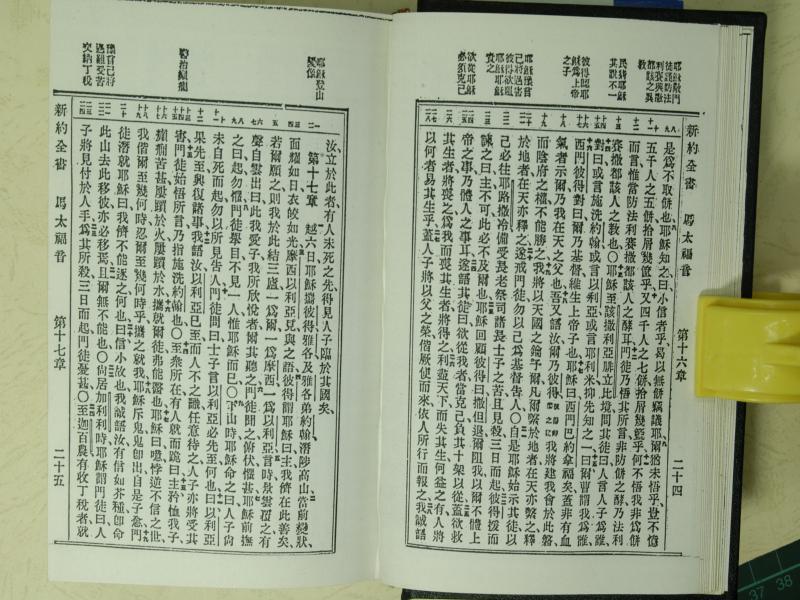 新約全書 馬太福音 第十六章 二十四
耶穌戒門
徒謹防法
利賽與撒
都該之異
教
民猜耶穌
其說不一
彼得認耶
穌為上帝
之子
耶穌預言
己將遇害
彼得欲阻
耶穌耶穌
責之
欲從耶穌
必須克己
是為不取餅也、耶穌知之曰、小信者乎、曷以無餅竊議耶、爾猶未悟乎、豈不憶
五千人之五餅、拾屑幾筐乎、又四千人之七餅、拾屑幾籃乎、何不悟我非為餅
而言、惟當防法利賽撒都該人之酵耳、門徒乃悟其所言、非防餅之酵、乃法利
賽撒都該人之教也、〇耶穌至該撒利亞腓立比境、問其徒曰、人言人子為誰、
對曰、或言施洗約翰、或言以利亞、或言耶利米、抑先知之一、曰、爾曹謂我為誰、
西門彼得對曰、爾乃基督、維生上帝子也、耶穌曰、西門巴約拿福矣、蓋非有血
氣者示爾、乃我在天之父也、吾又語汝、爾乃彼得我將建我會於此磐、
而陰府之權、不能勝之、我將以天國之鑰予爾、凡爾繫於地者、在天亦繫之、釋
於地者、在天亦釋之、遂戒門徒、勿以己為基督告人、〇自是耶穌始示其徒、以
己必往耶路撒冷、備受長老祭司諸長士子之苦、且見殺、三日而起、彼得援而
諫之曰、主不可、此必不及爾也、耶穌回顧彼得曰、撒但退、爾阻我、以爾不體上
帝之事、乃體人之事耳、遂語其徒曰、欲從我者、當克己、負其十架以從、蓋欲救
其生者、將喪之、為我而喪其生者、將得之、利盡天下、而失其生、何益之有、人將
以何者易其生乎、蓋人子將以父之榮、偕厥使而來、依人所行而報之、我誠語
耶穌登山
變像
醫治癲癎
豫言己將
遇難受苦
交納丁稅
汝、立於此者、有人未死之先、得見人子臨於其國矣、
第十七章 越六日、耶穌攜彼得、雅各、及雅各弟約翰、潛陟高山、當前變狀、
面耀如日、衣皎如光、摩西以利亞見與之語、彼得謂耶穌曰、主、我儕在此善矣、
若爾願之、則我於此結三廬、一為爾、一為摩西、一為以利亞、言時、景雲覆之、有
聲自雲出曰、此我愛子、我所欣悅者、爾其聽之、門徒聞之、俯伏懼甚、耶穌前撫
之曰、起、勿懼、門徒舉目、不見一人、惟耶穌而已、〇下山時、耶穌命之曰、人子尚
未自死而起、勿以所見告人、門徒問曰、士子言以利亞必先至、何也、曰、以利亞
果先至、興復諸事、我語汝、以利亞已至、而人不之識、任意待之、人子亦將受其
害、門徒始悟所言、乃指施洗約翰也、〇至眾所、有人就而跪曰、主矜恤我子、
癲癎苦甚、屢躓於火、屢躓於水、攜就爾徒、弗能醫也、耶穌曰、噫、悖逆不信之世、
我偕爾至幾何時、忍爾至幾何時乎、攜之就我、耶穌斥鬼、鬼卽出、自是子愈、門
徒潛就耶穌曰、我儕不能逐之、何也、曰、信小故也、我誠語汝、有信如芥種、卽命
此山去此移彼、亦必移焉、且爾無不能也、〇尚居加利利時、耶穌謂門徒曰、人
子將見付於人手、為其所殺、三日而起、門徒憂甚、〇至迦百農、有收丁稅者、就
新約全書 馬太福音 第十七章 二十五
37 38